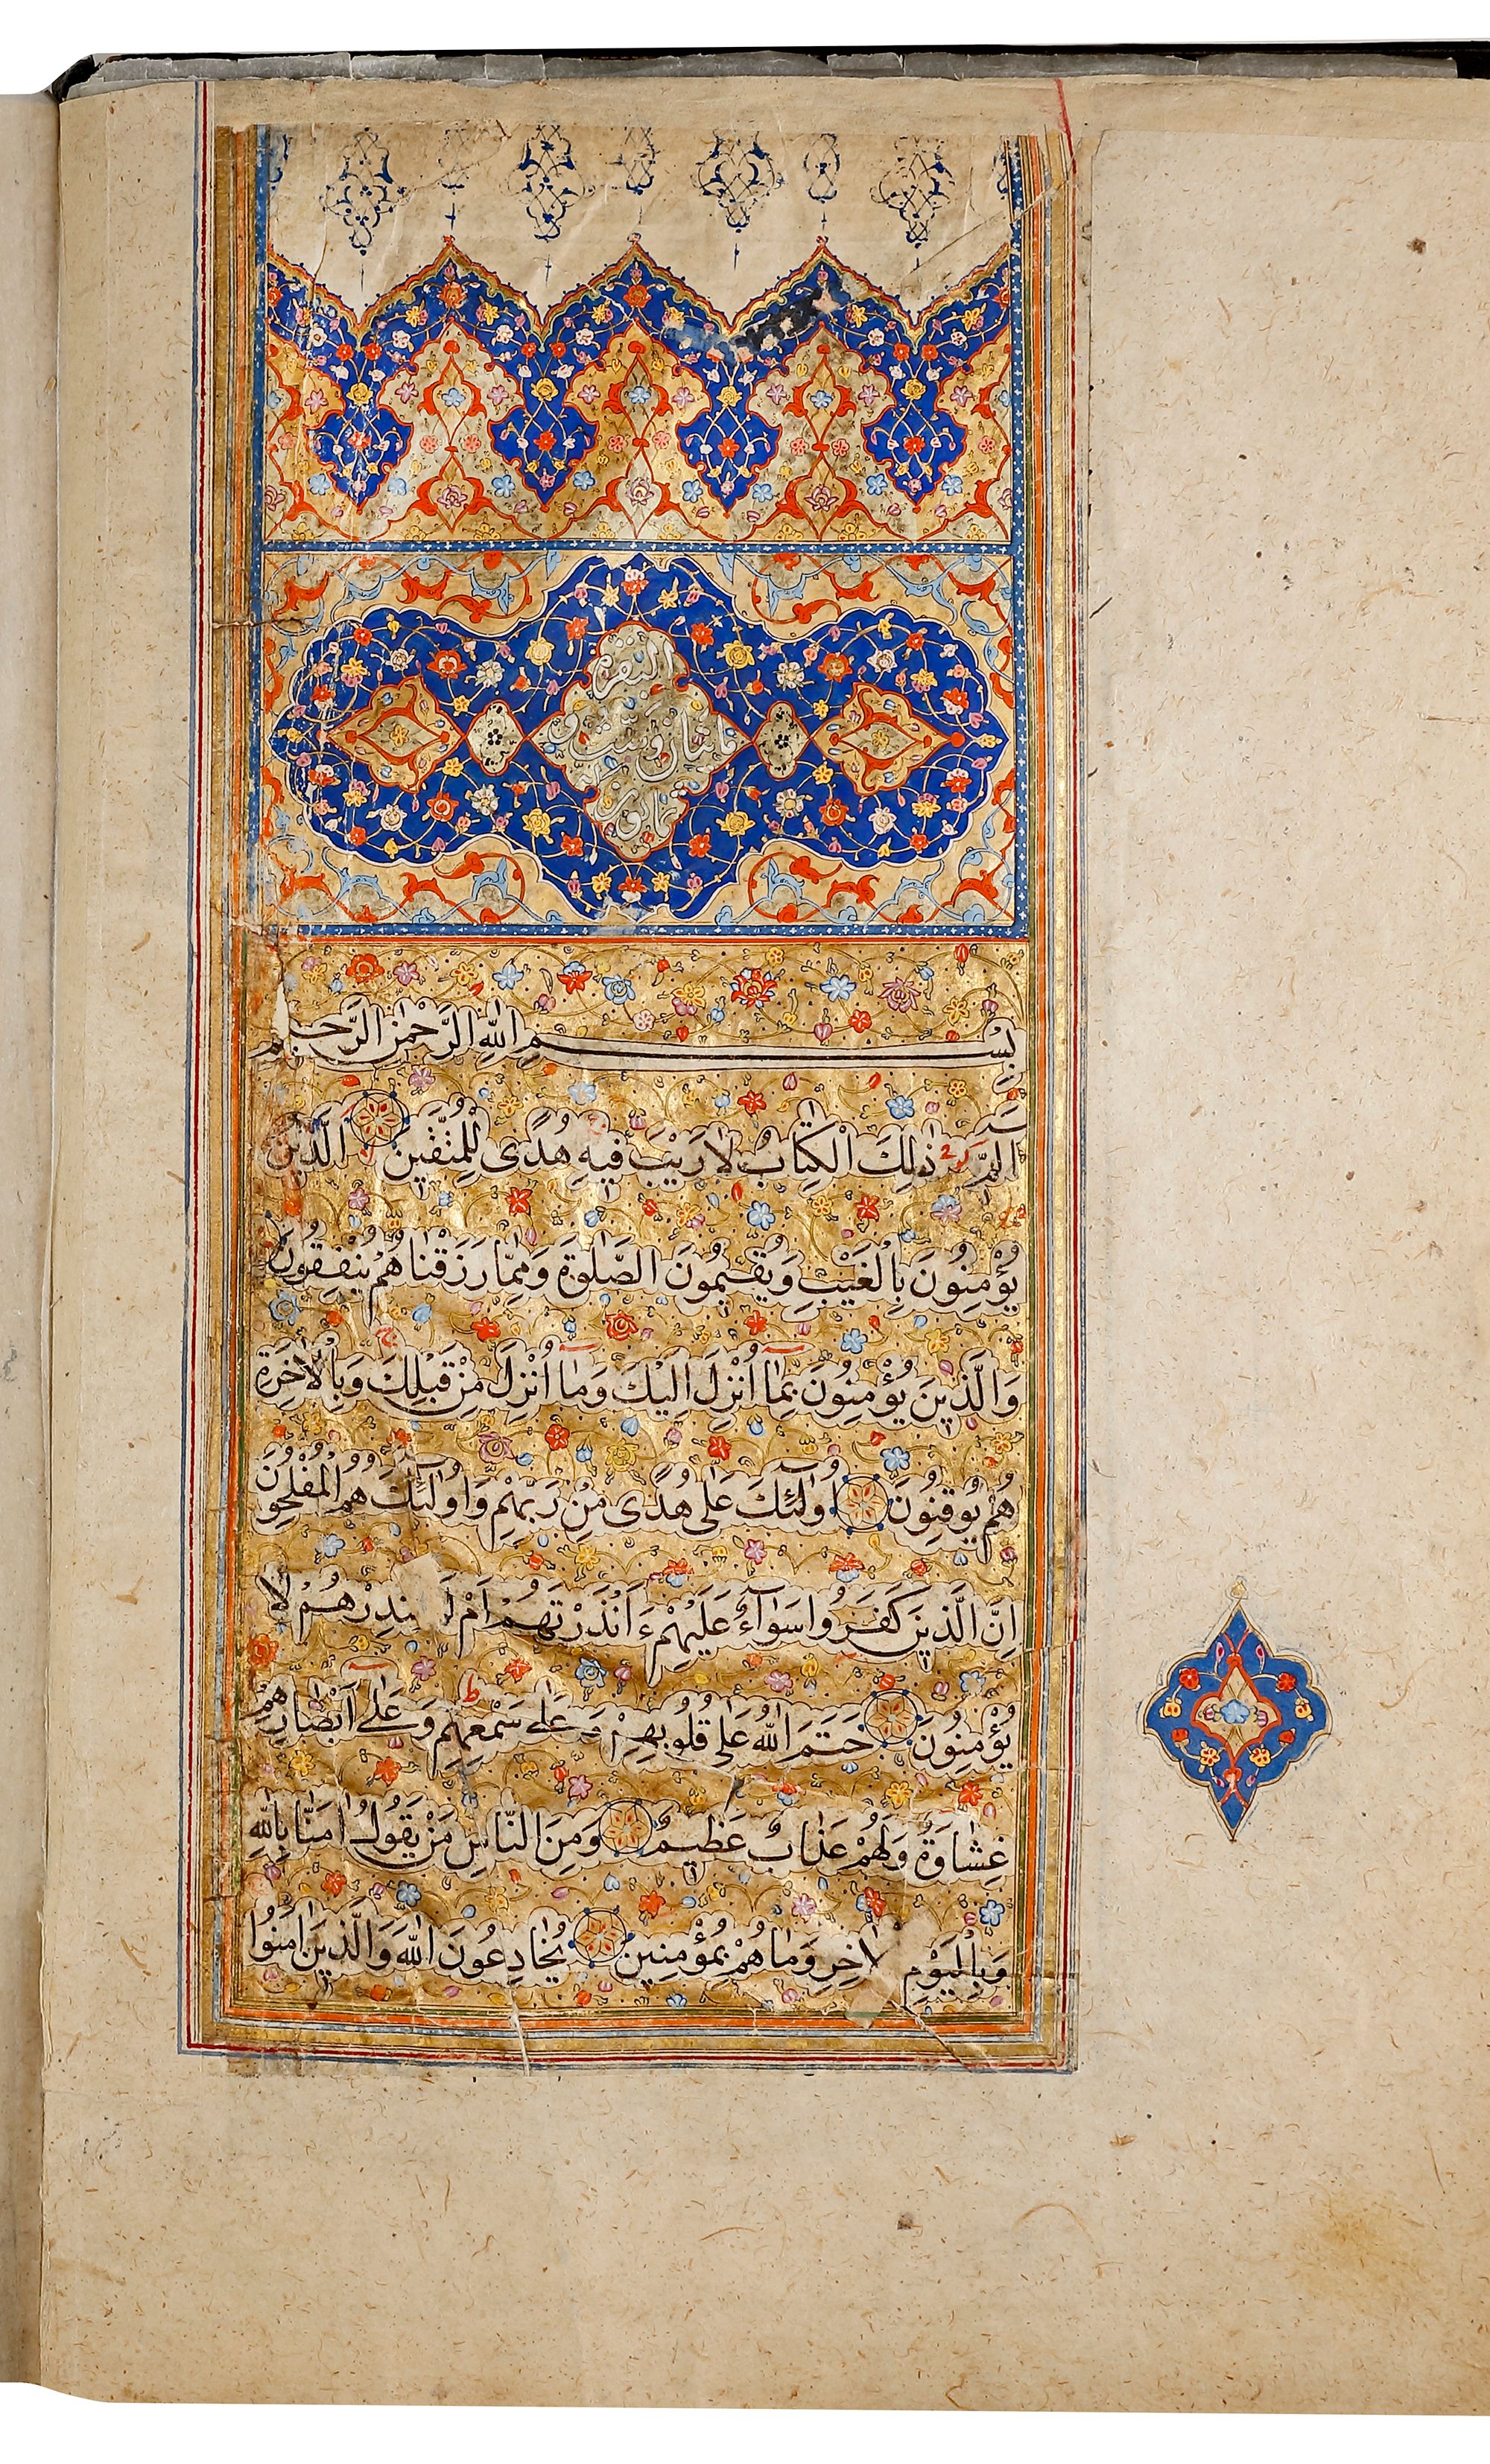 البقرة
مائتان وست و
ثمانون
بِسْمِ اللهِ الرَّحْمٰنِ الرَّحيمِ
الٓمّٓ ذٰلِكَ الْكِتٰابُ لٰا رَيْبَ فيهِ هُدًى لِلْمُتَّقينَ الَّذينَ
يُؤْمِنُونَ بِالْغَيْبِ وَيُقيمُونَ الصَّلٰوةَ وَمِمّٰا رَزَقْنٰاهُمْ يُنْفِقُونَ
وَالَّذينَ يُؤْمِنُونَ بِمٰٓا اُنْزِلَ اِلَيْكَ وَمٰٓا اُنْزِلَ مِنْ قَبْلِكَ وَبِالْاٰخِرَةِ
هُمْ يُوقِنُونَ اُولٰٓئِكَ عَلٰى هُدًى مِنْ رَبِّهِمْ وَاُولٰٓئِكَ هُمُ الْمُفْلِحُونَ
اِنَّ الَّذينَ كَفَرُوا سَوٰٓاءٌ عَلَيْهِمْ ءَاَنْذَرْتَهُمْ اَمْ لَ نذِرْهُمْ لٰا
يُؤْمِنُونَ خَتَمَ اللهُ عَلٰى قُلُوبِهِمْ وَعَلٰى سَمْعِهِمْ وَعَلٰٓى اَبْصٰارِهِمْ
غِشٰاوَةٌ وَلَهُمْ عَذٰابٌ عَظيمٌ وَمِنَ النّٰاسِ مَنْ يَقُولُ اٰمَنّٰا بِاللهِ
وَبِالْيَوْمِ الْاٰخِرِ وَمٰا هُمْ بِمُؤْمِنينَ يُخٰادِعُونَ اللهَ وَالَّذينَ اٰمَنُوا